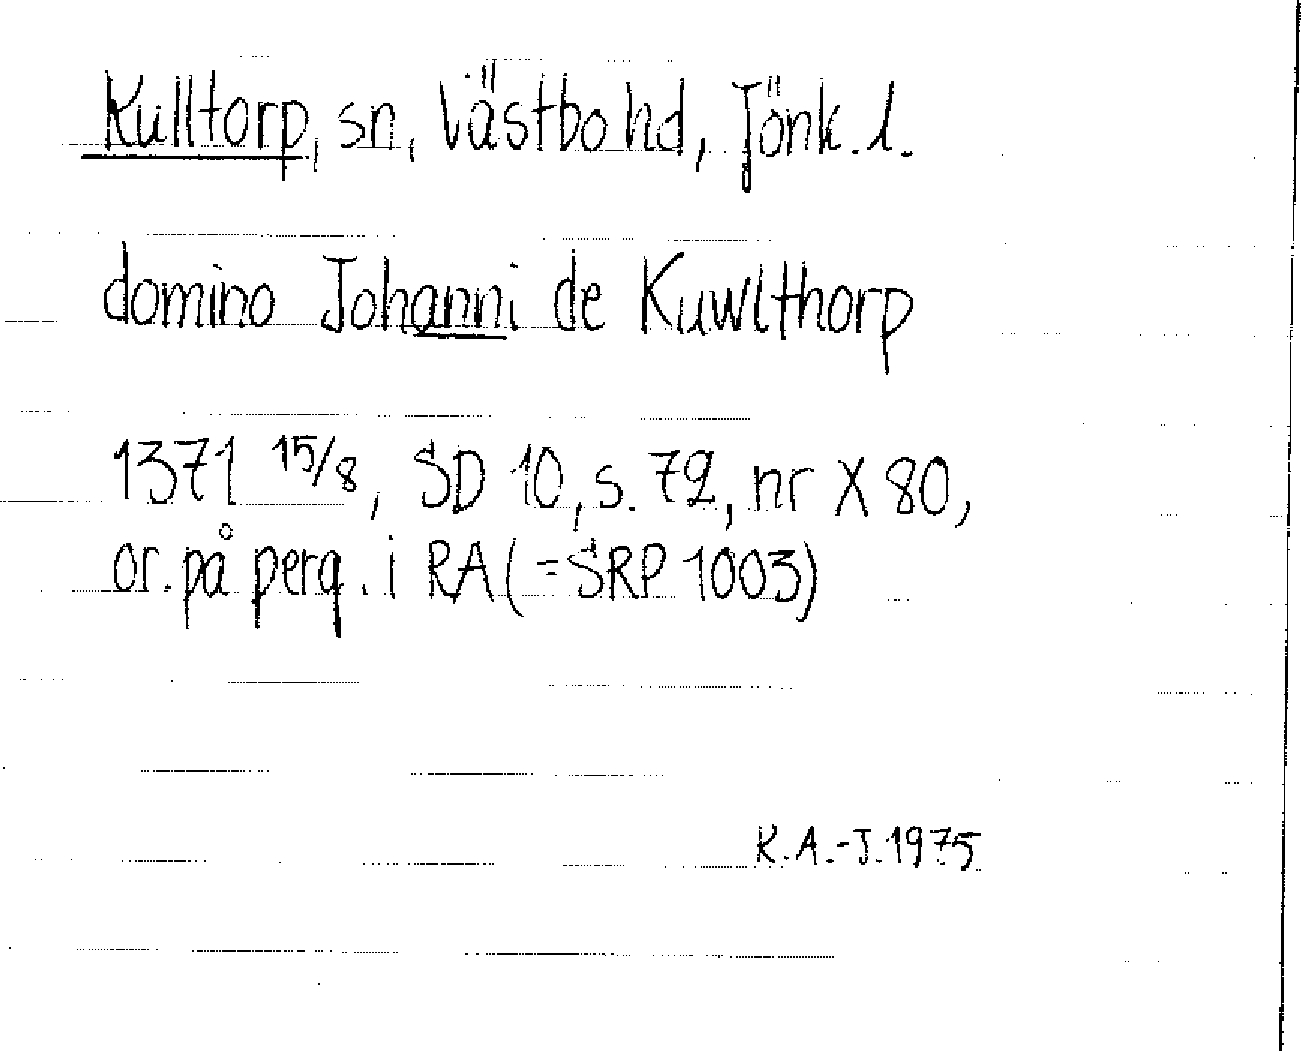 Kulltorp, sn, Västbo hd, Jönk. l.
domino Johanni de Kuwlthorp
1371 15/8, SD 10, s. 72, nr X 80,
or. på perg. i RA (=SRP 1003)
K.A.-J. 1975